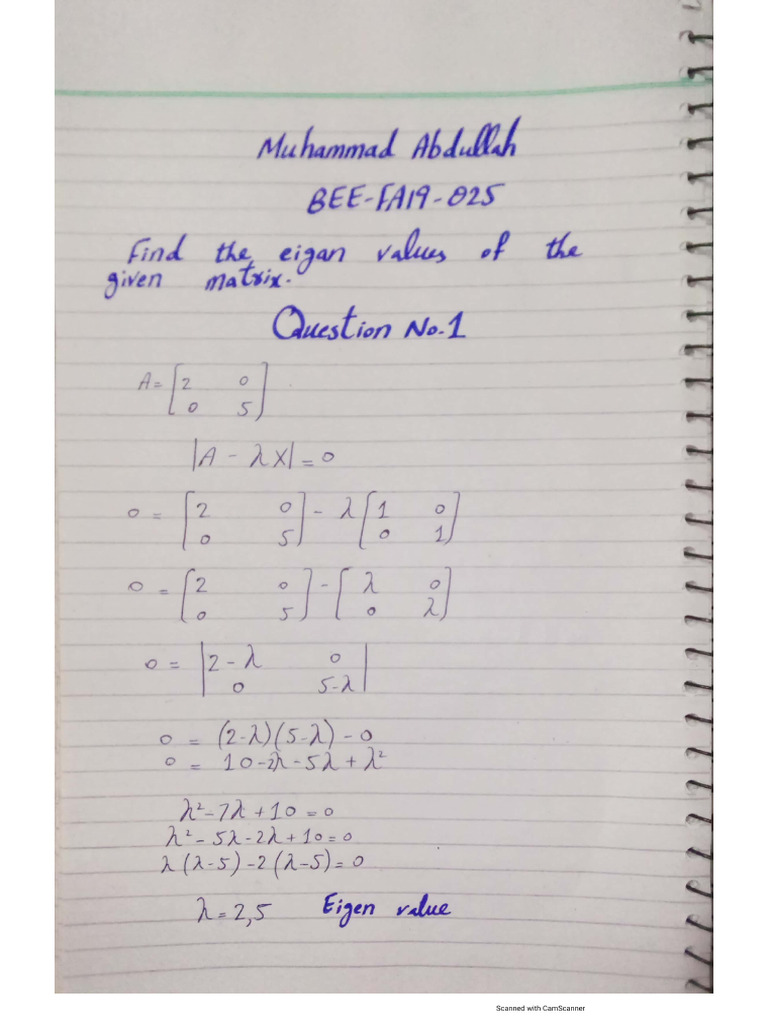 Muhammad Abdullah
BEE-FA19-025
Find the eigan values of the
given matrix.
Question No.1
A = [2 0
0 5]
|A - λX| = 0
0 = [2 0 - λ [1 0
0 5] 0 1]
0 = [2 0 - [λ 0
0 5] 0 λ]
0 = |2-λ 0|
|0 5-λ|
0 = (2-λ)(5-λ) - 0
0 = 10-2λ-5λ+λ²
λ²-7λ+10=0
λ²-5λ-2λ+10=0
λ(λ-5)-2(λ-5)=0
λ=2,5 Eigen value
Scanned with CamScanner